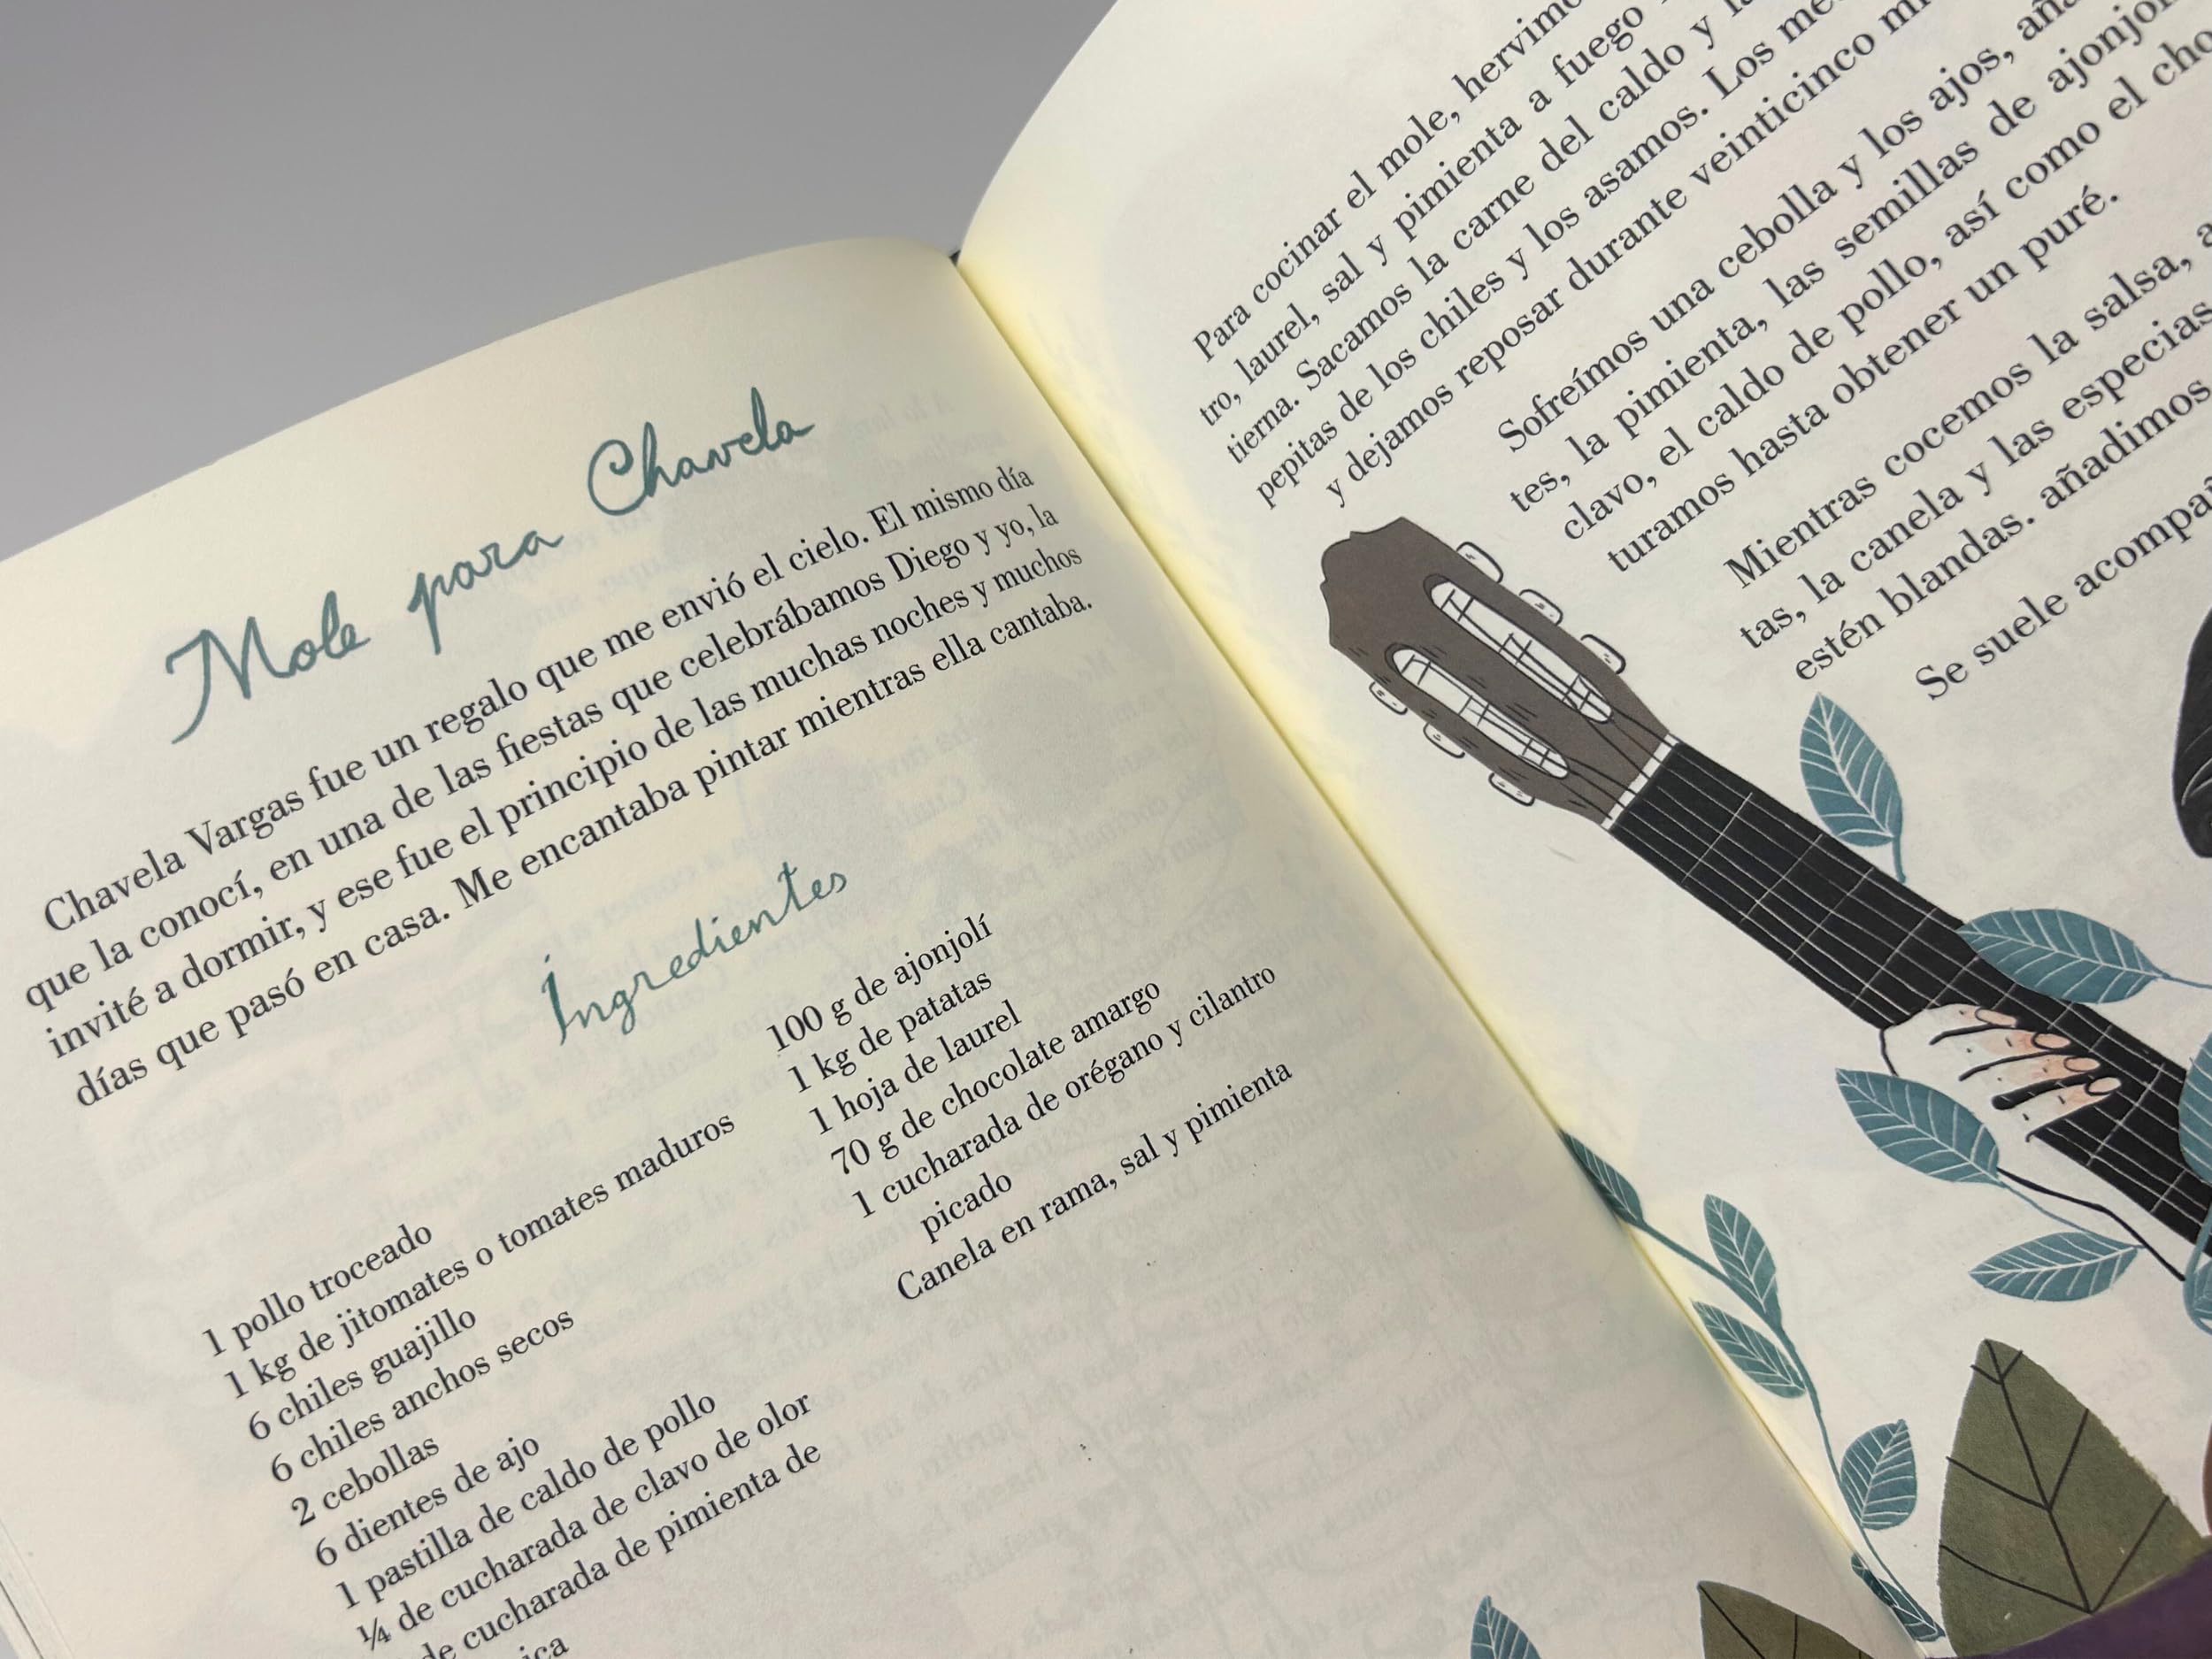 Mole para Chavela
Chavela Vargas fue un regalo que me envió el cielo. El mismo día
que la conocí, en una de las fiestas que celebrábamos Diego y yo, la
invité a dormir, y ese fue el principio de las muchas noches y muchos
días que pasó en casa. Me encantaba pintar mientras ella cantaba.
Ingredientes
1 pollo troceado
1 kg de jitomates o tomates maduros
6 chiles guajillo
6 chiles anchos secos
2 cebollas
6 dientes de ajo
1 pastilla de caldo de pollo
¼ de cucharada de clavo de olor
de cucharada de pimienta de
100 g de ajonjolí
1 kg de patatas
1 hoja de laurel
70 g de chocolate amargo
1 cucharada de orégano y cilantro
picado
Canela en rama, sal y pimienta
Para cocinar el mole,
tro, laurel, sal y pimienta a fuego
tierna. Sacamos la carne del caldo y
pepitas de los chiles y los asamos. Los
y dejamos reposar durante veinticinco
Sofreímos una cebolla y los ajos,
tes, la pimienta, las semillas de
clavo, el caldo de pollo, así como el
turamos hasta obtener un puré.
Mientras cocemos la salsa,
tas, la canela y las especias
estén blandas. añadimos
Se suele